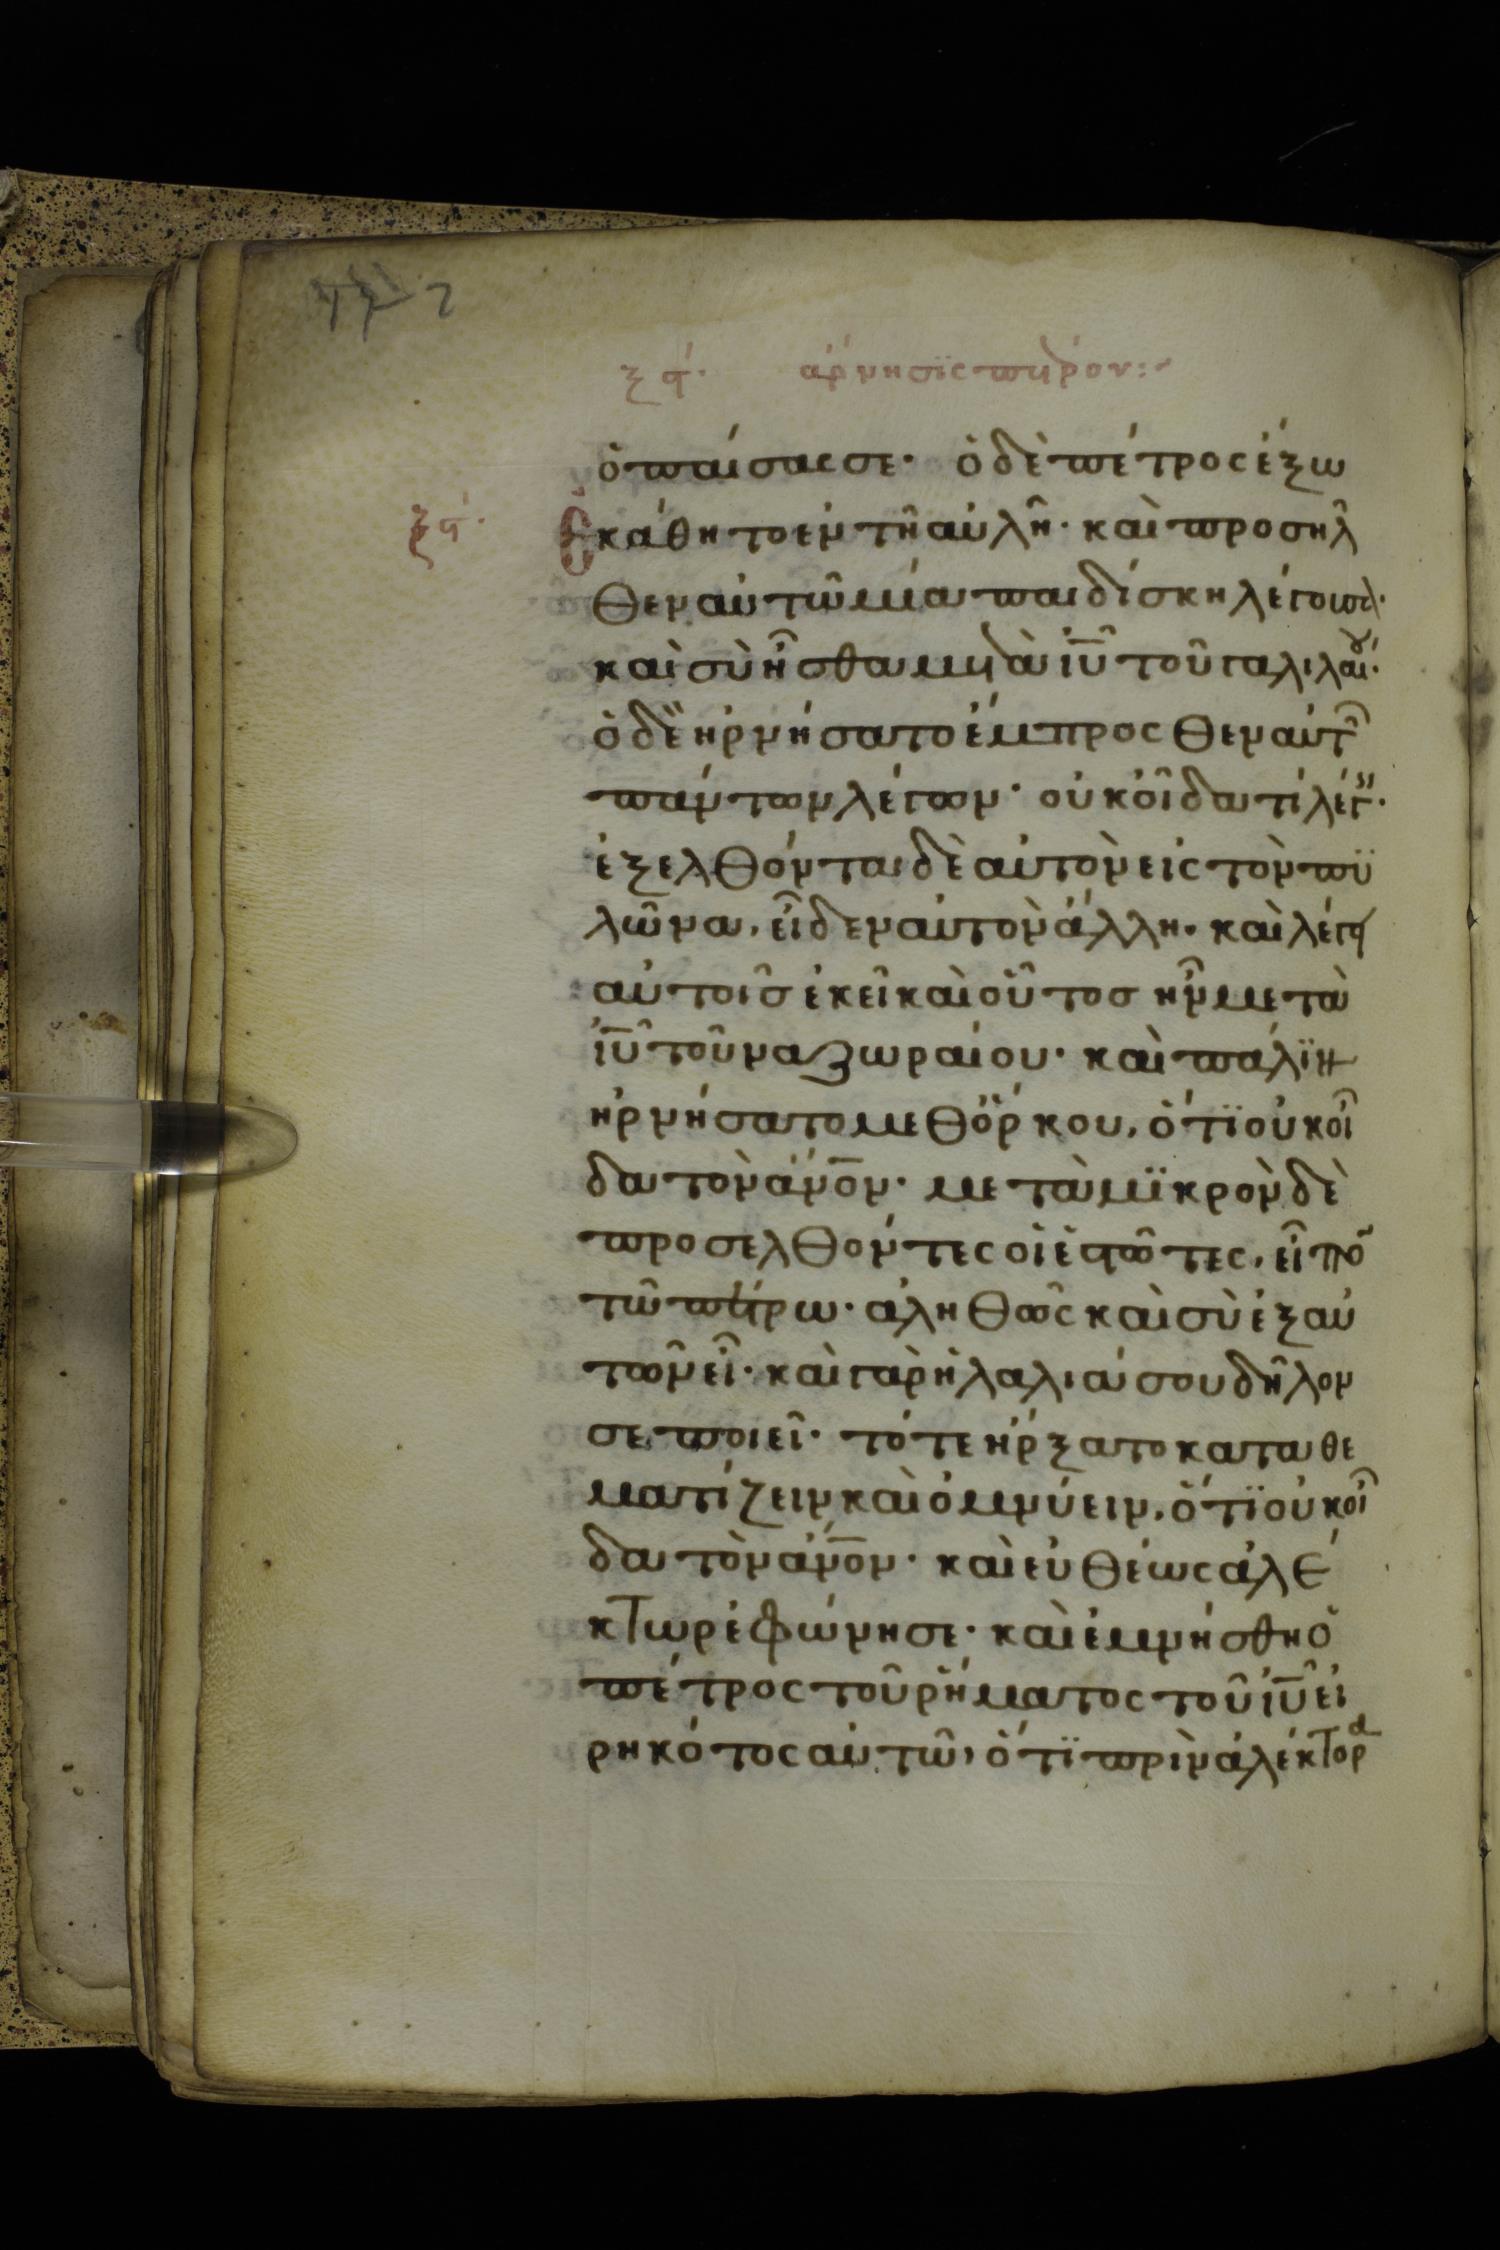 ξϛ΄· ἄρνησϊς πέτρου:~
ὁ παίσας σε· ὁ δὲ πέτρος ἔξω
ξϛ΄· ἐκάθητο ἐν τῆ αὐλῆ· καὶ προσῆλ
θεν αὐτῶ μία παιδίσκη λέγουσα·
καὶ σὺ ἦσθα μετὰ ἰῦ τοῦ γαλιλαίου·
ὁ δὲ ἠρνήσατο ἔμπροσθεν αὐτῶν
πάντων λέγων· οὐκ οἶδα τί λέγεις·
ἐξελθόντα δὲ αὐτὸν εἰς τὸν πϋ
λῶνα, εἶδεν αὐτὸν ἄλλη· καὶ λέγει
αὐτοῖς ἐκεῖ καὶ οὗτος ἦν μετὰ
ἰῦ τοῦ ναζωραίου· καὶ πάλϊν
ἠρνήσατο μεθ ὅρκου, ὅτϊ οὐκ οἶ
δα τὸν ἄνον· μετὰ μϊκρὸν δὲ
προσελθόντες οἱ ἑστῶτες, εἶπον
τῶ πέτρω· ἀληθῶς καὶ σὺ ἐξ αὐ
τῶν εἶ· καὶ γὰρ ἡ λαλιά σου δῆλον
σε ποιεῖ· τότε ἤρξατο καταθε
ματίζειν καὶ ὀμνύειν, ὅτϊ οὐκ οἶ
δα τὸν ἄνον· καὶ εὐθέως ἀλέ
κτωρ ἐφώνησε· καὶ ἐμνήσθη ὁ
πέτρος τοῦ ῥήματος τοῦ ἰῦ εἰ
ρηκότος αὐτῶ, ὅτϊ πρὶν ἀλέκτορα